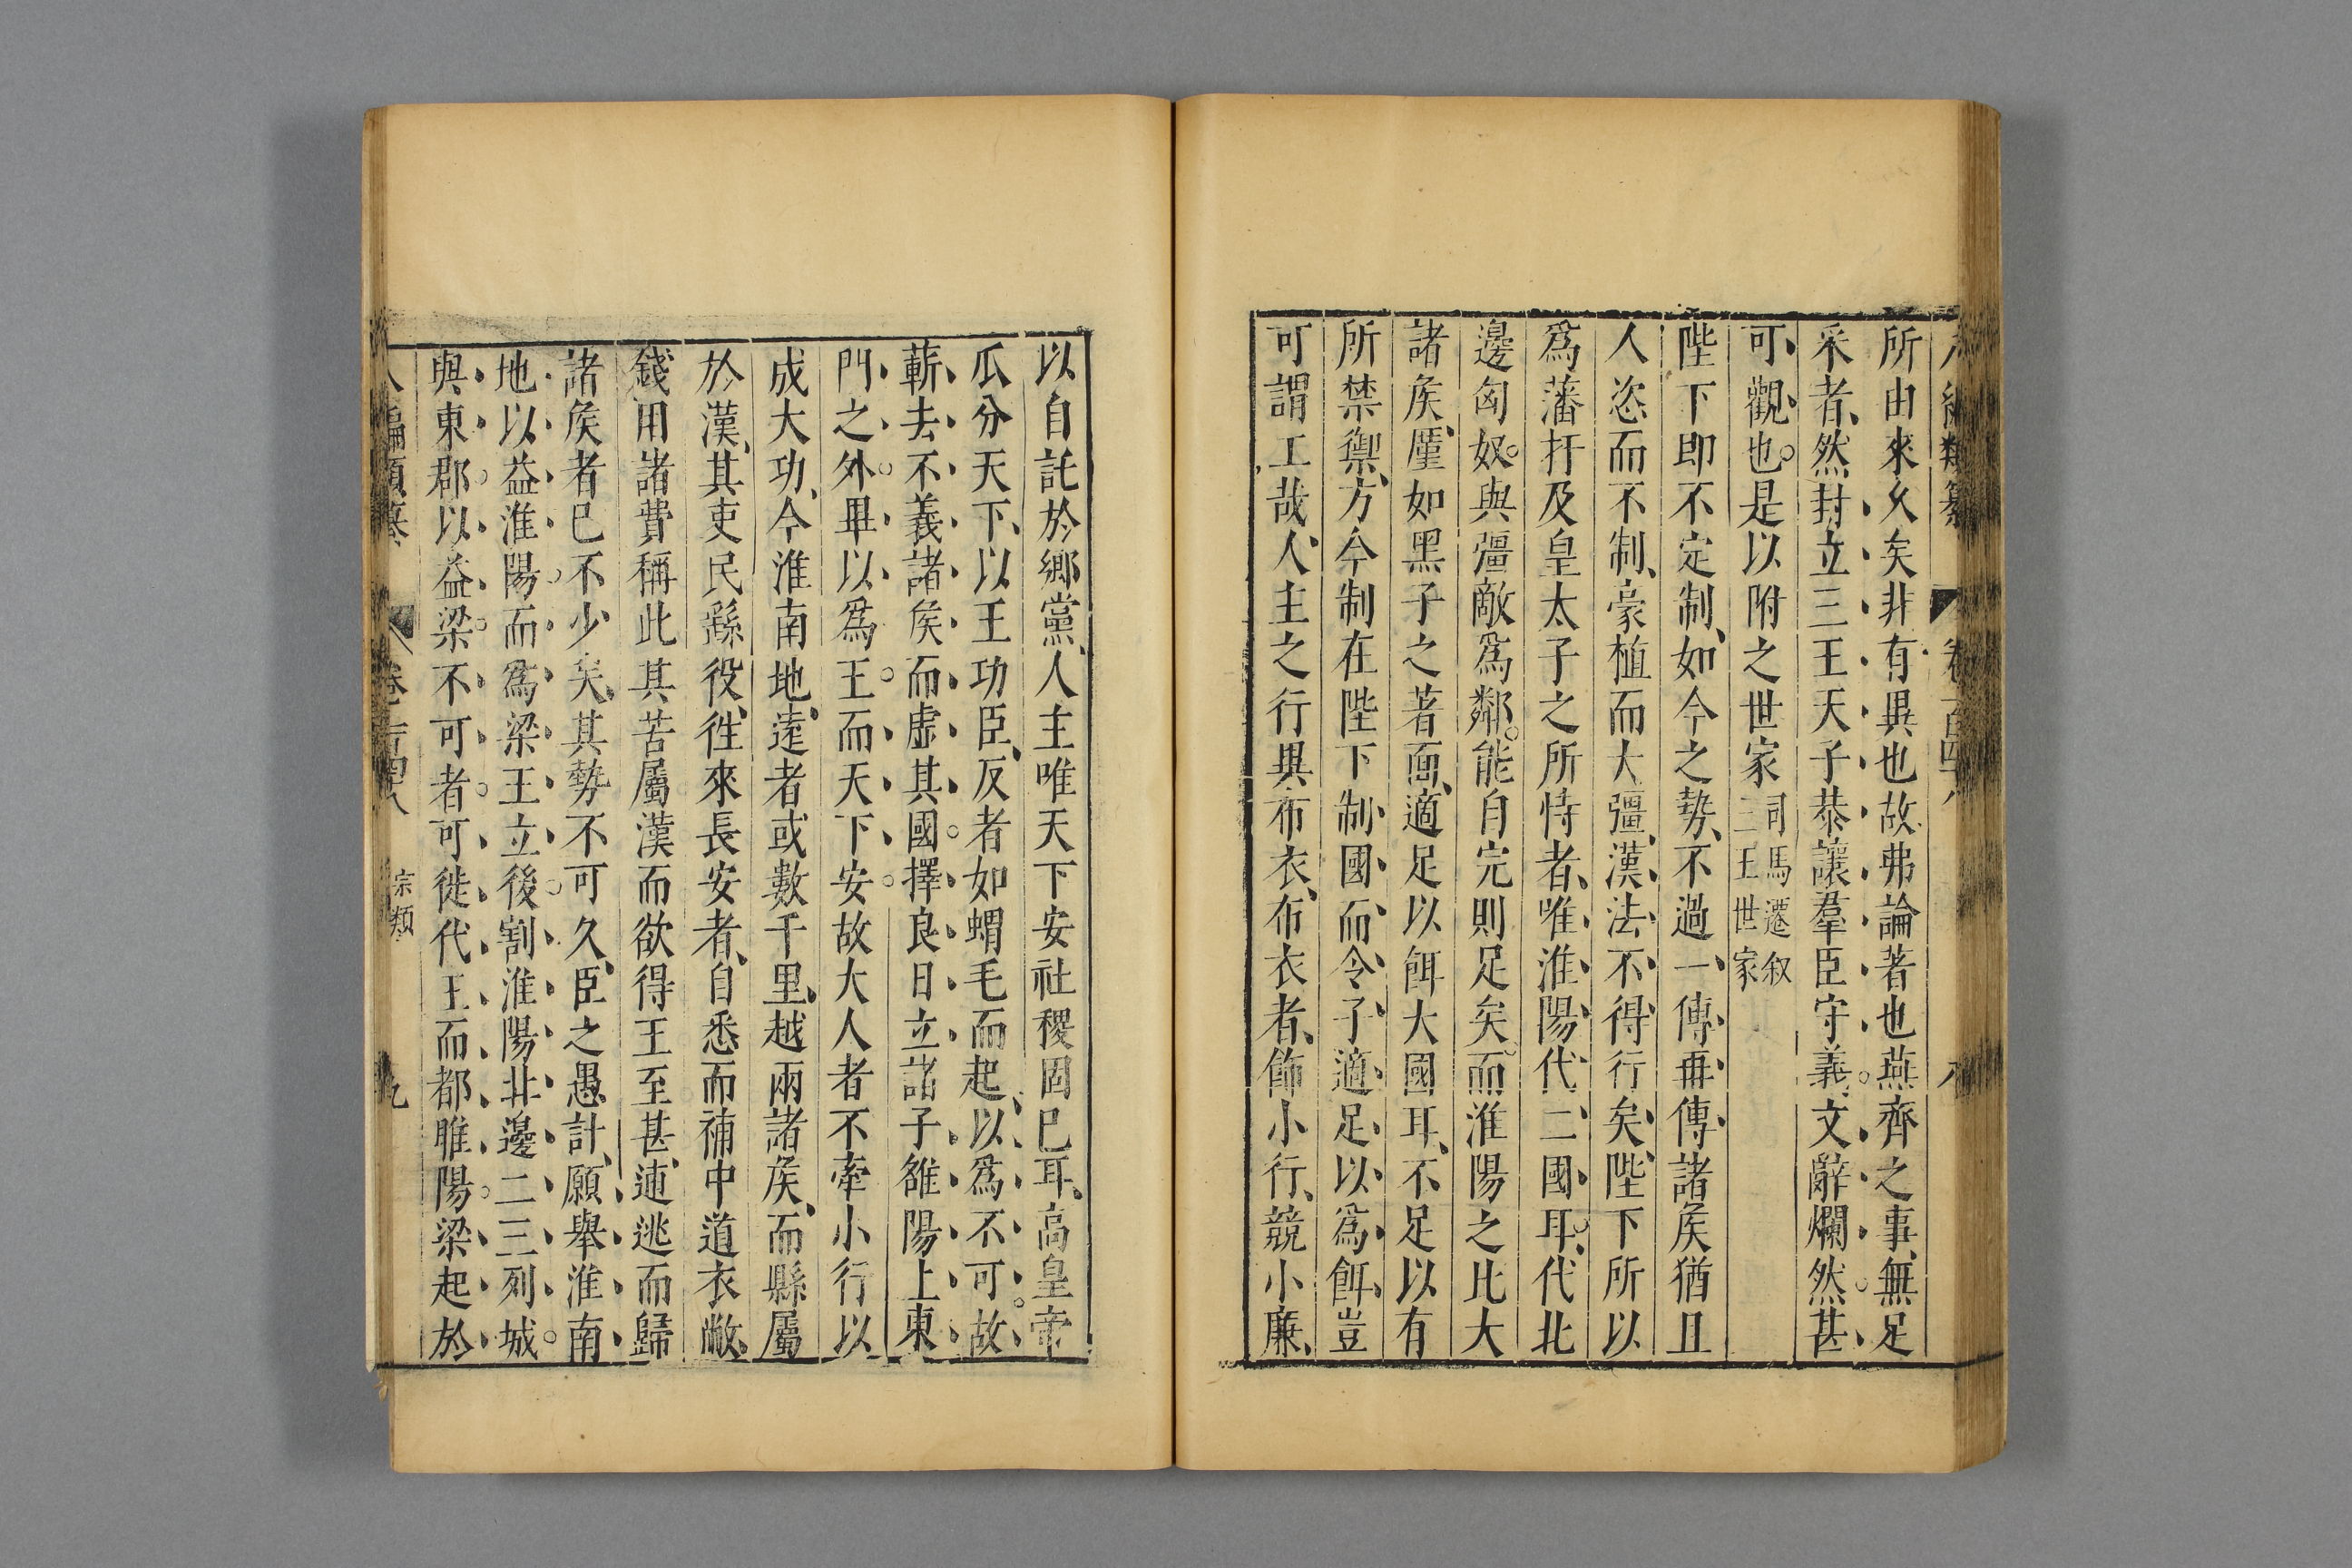 編類纂 卷一百四八 八
所由來久矣非有異也故弗論著也燕齊之事無足
采者然封立三王天子恭讓羣臣守義文辭爛然甚
可觀也是以附之世家司馬遷叙三王世家
陛下即不定制如今之勢不過一傳再傳諸矦猶且
人恣而不制豪植而大彊漢法不得行矣陛下所以
爲藩扞及皇太子之所恃者唯淮陽代二國耳代北
邊匈奴與彊敵爲鄰能自完則足矣而淮陽之比大
諸矦厪如黑子之著面適足以餌大國耳不足以有
所禁禦方今制在陛下制國而令子適足以爲餌豈
可謂工哉人主之行異布衣布衣者飾小行競小廉
以自託於鄉黨人主唯天下安社稷固巳耳高皇帝
瓜分天下以王功臣反者如蝟毛而起以爲不可故
蘄去不義諸矦而虛其國擇良日立諸子雒陽上東
門之外畢以爲王而天下安故大人者不牽小行以
成大功今淮南地遠者或數千里越兩諸矦而縣屬
於漢其吏民繇役徃來長安者自悉而補中道衣敝
錢用諸費稱此其苦屬漢而欲得王至甚逋逃而歸
諸矦者巳不少矣其勢不可久臣之愚計願舉淮南
地以益淮陽而爲梁王立後割淮陽北邊二三列城
與東郡以益梁不可者可徙代王而都睢陽梁起於
八編類纂 卷一百四八 宗類 九